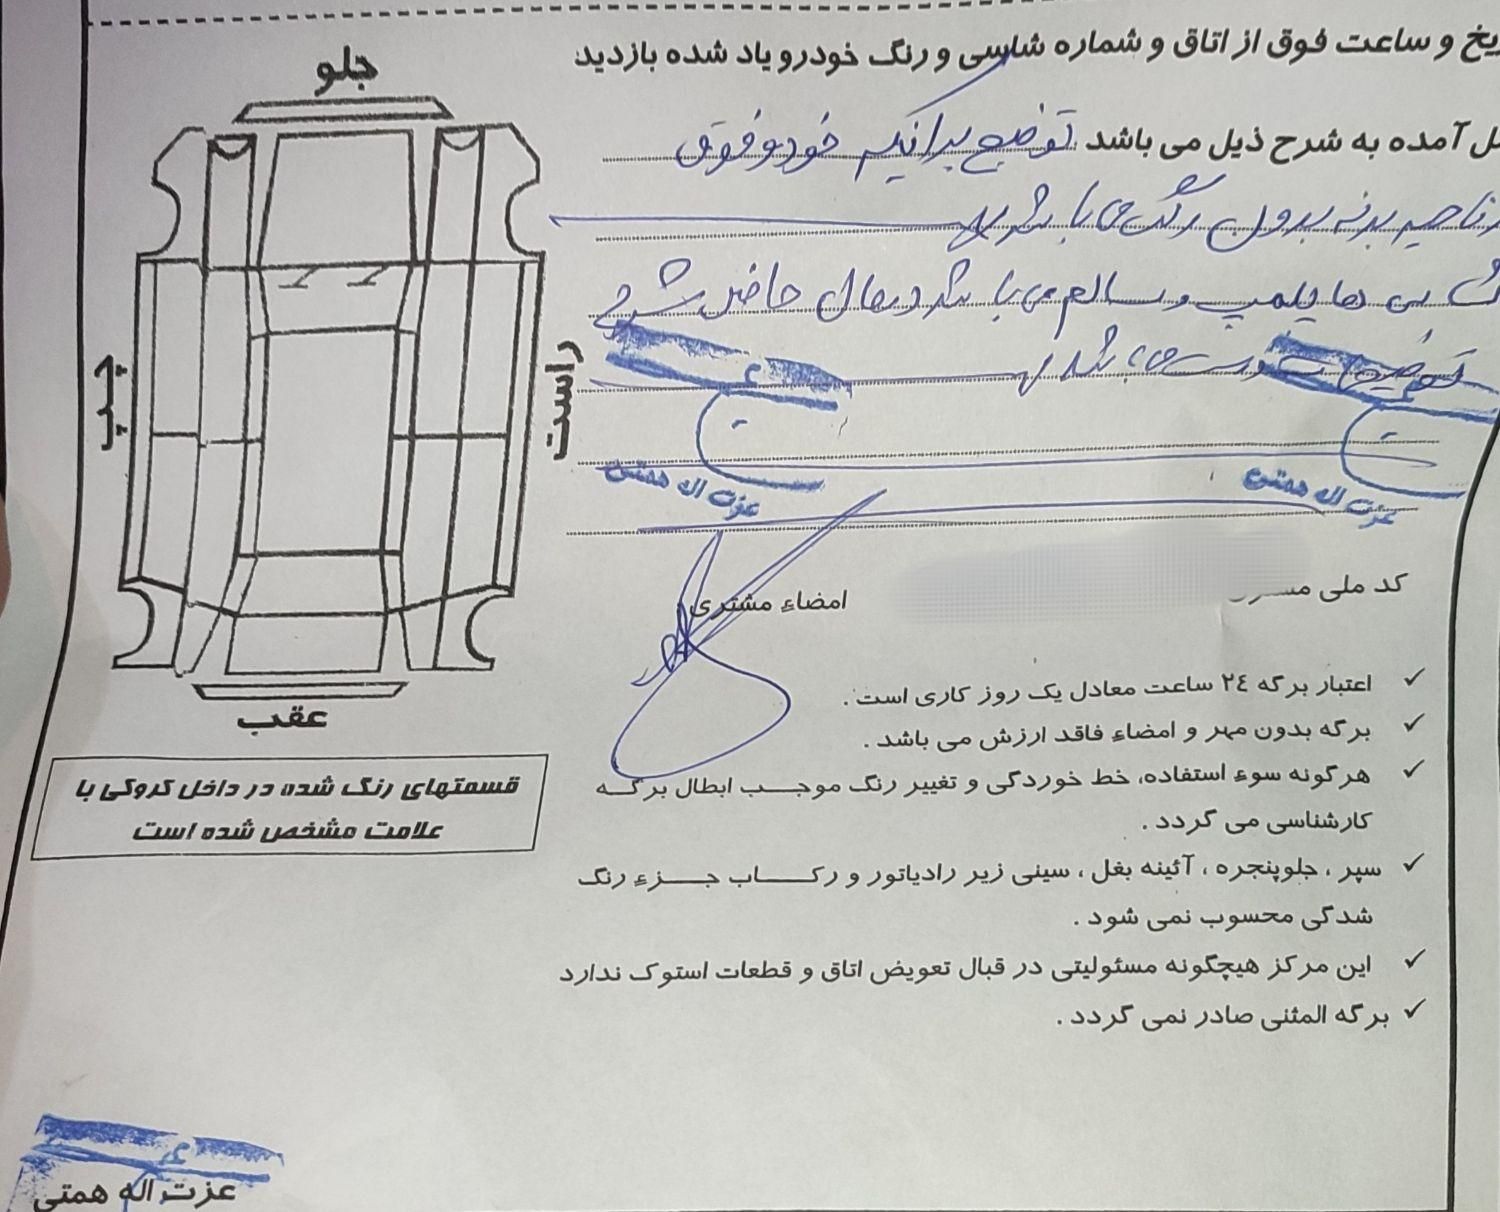 جلو
چپ
راست
عقب
قسمتهای رنگ شده در داخل کروکی با
علامت مشخص شده است
و ساعت فوق از اتاق و شماره شاسی و رنگ خودرو یاد شده بازدید
آمده به شرح ذیل می باشد توضیح برانکه خودرو فوق
بدنه بدون رنگ می باشد
پلمپ و سالم می باشد در حال حاضر شرح
توضیحات می باشد
عزت اله همتی
عزت اله همتی
کد ملی
امضاء مشتری
✓ اعتبار برگه ۲٤ ساعت معادل یک روز کاری است .
✓ برگه بدون مهر و امضاء فاقد ارزش می باشد .
✓ هرگونه سوء استفاده، خط خوردگی و تغییر رنگ موجب ابطال برگه
کارشناسی می گردد .
✓ سپر ، جلوپنجره ، آئینه بغل ، سینی زیر رادیاتور و رکاب جزء رنگ
شدگی محسوب نمی شود .
✓ این مرکز هیچگونه مسئولیتی در قبال تعویض اتاق و قطعات استوک ندارد
✓ برگه المثنی صادر نمی گردد .
عزت اله همتی